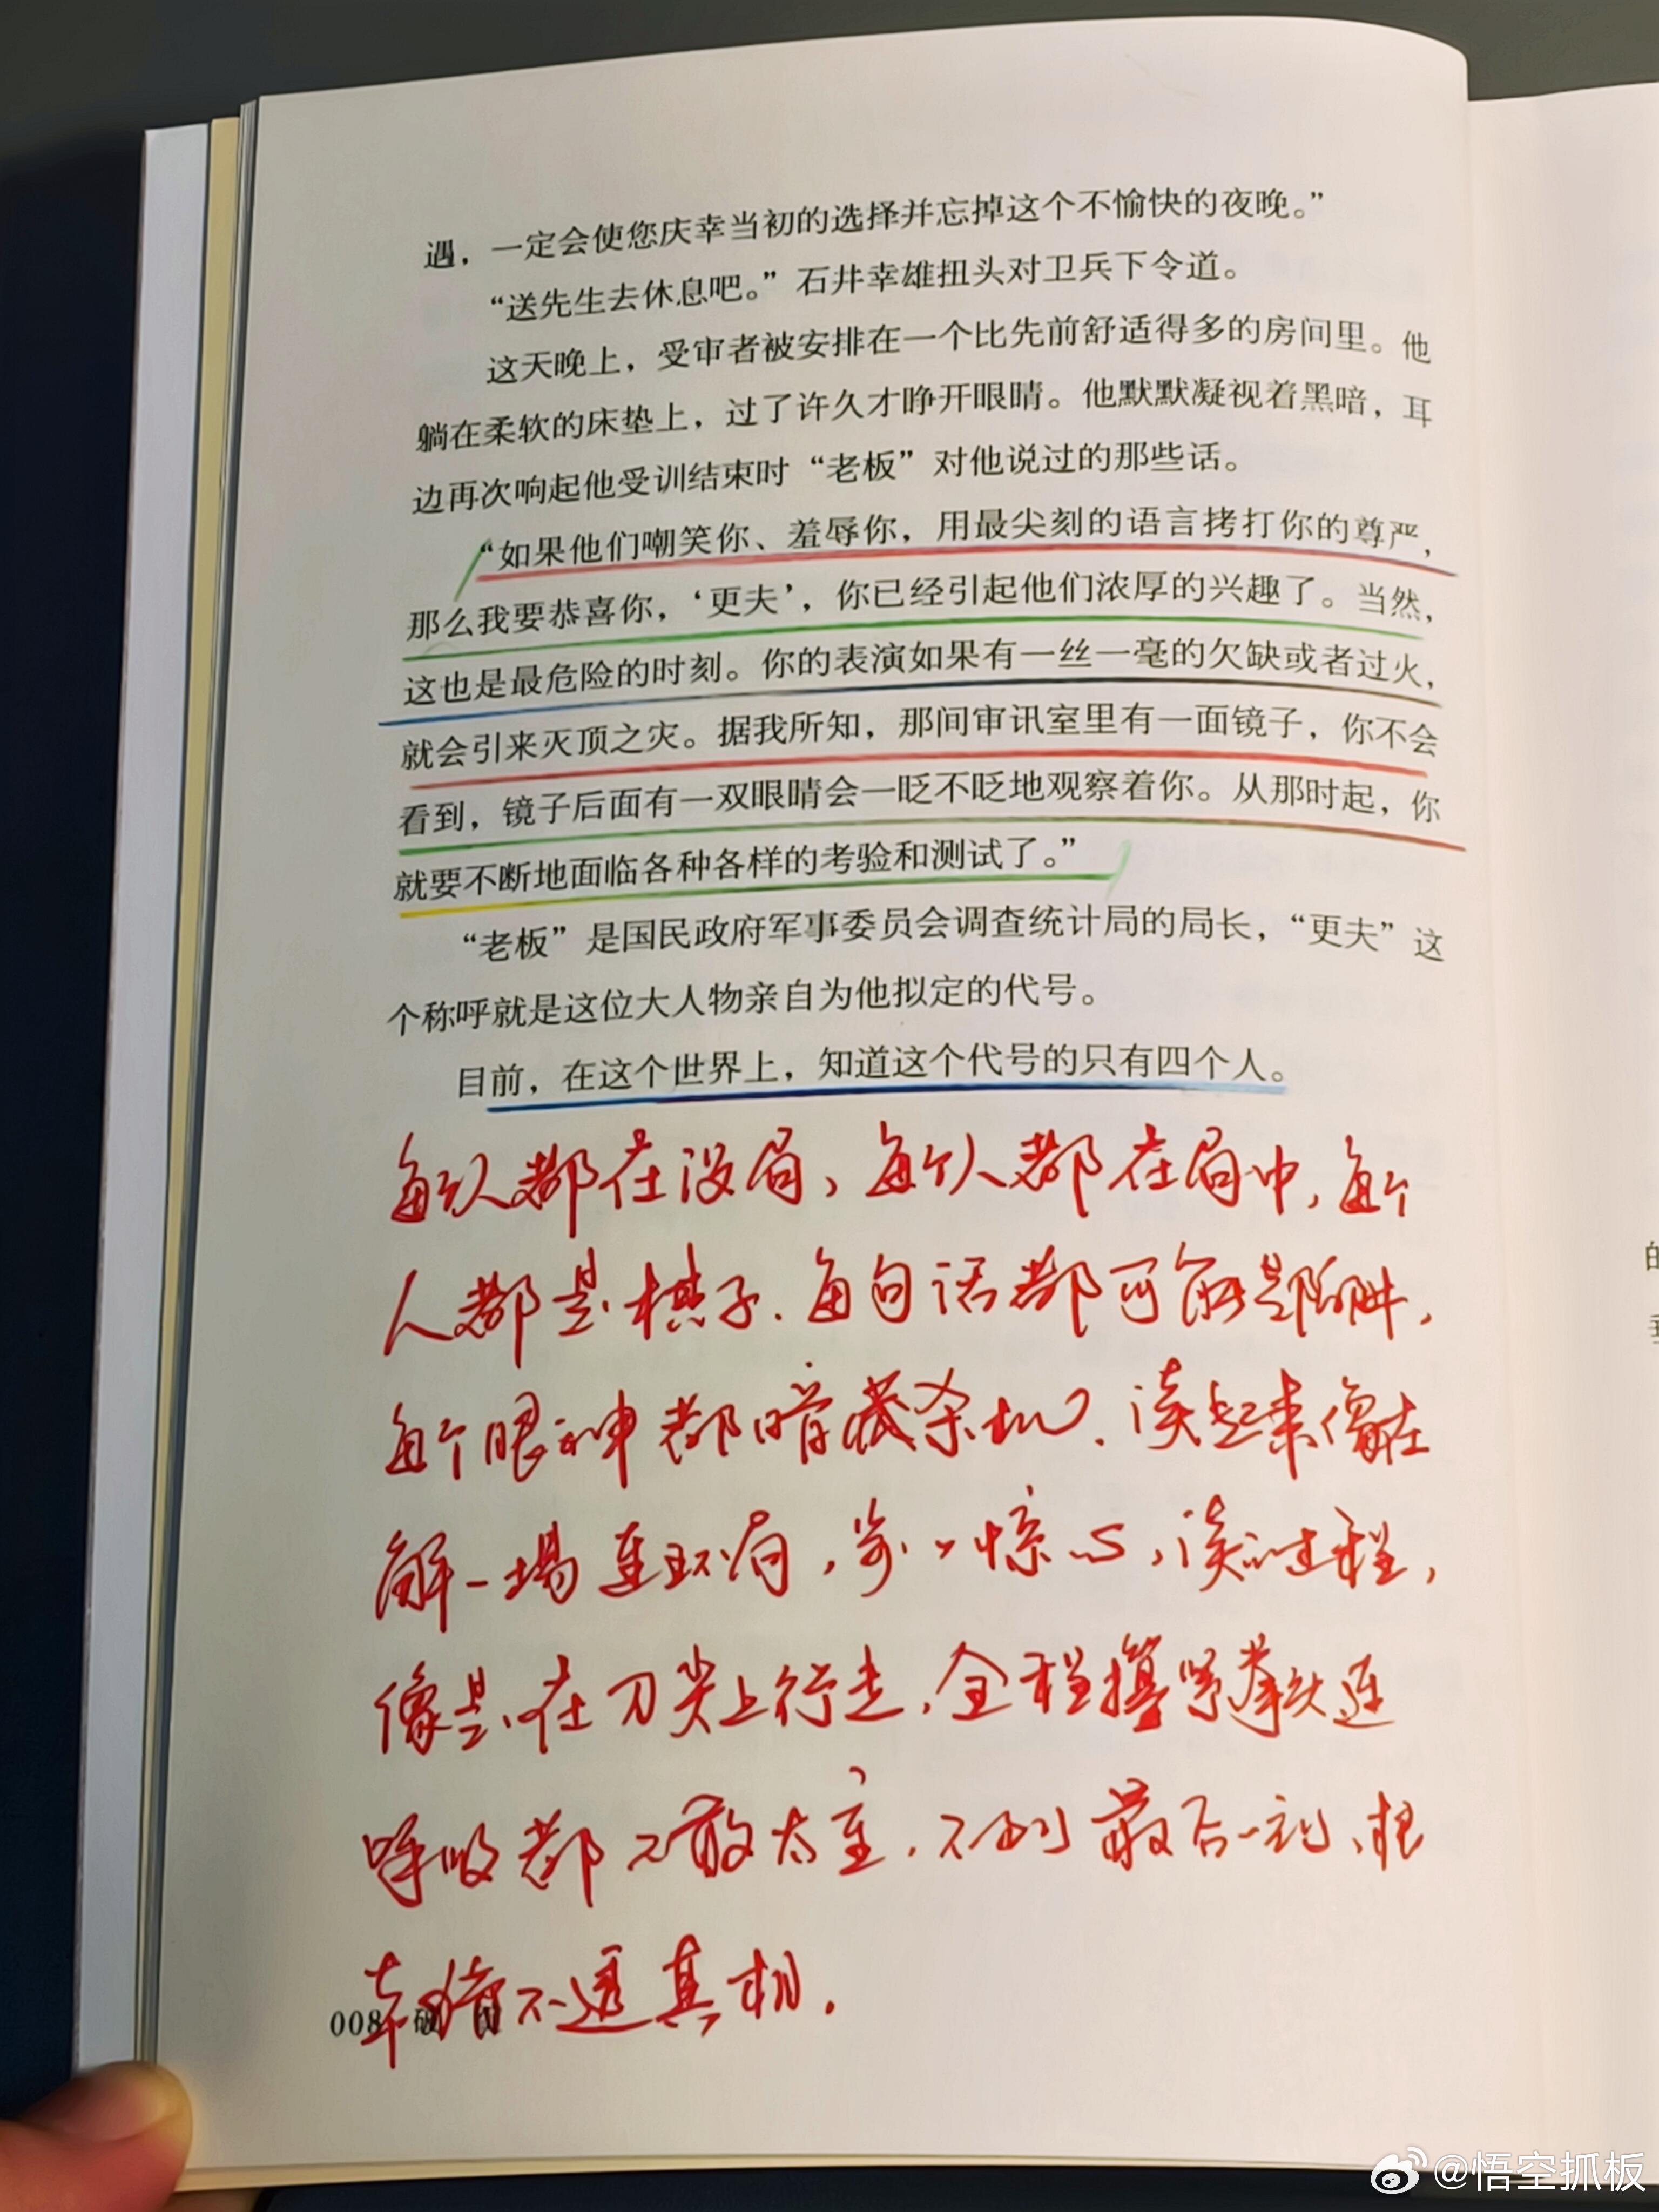 遇，一定会使您庆幸当初的选择并忘掉这个不愉快的夜晚。”
“送先生去休息吧。”石井幸雄扭头对卫兵下令道。
这天晚上，受审者被安排在一个比先前舒适得多的房间里。他
躺在柔软的床垫上，过了许久才睁开眼睛。他默默凝视着黑暗，耳
边再次响起他受训结束时“老板”对他说过的那些话。
“如果他们嘲笑你、羞辱你，用最尖刻的语言拷打你的尊严，
那么我要恭喜你，‘更夫’，你已经引起他们浓厚的兴趣了。当然，
这也是最危险的时刻。你的表演如果有一丝一毫的欠缺或者过火，
就会引来灭顶之灾。据我所知，那间审讯室里有一面镜子，你不会
看到，镜子后面有一双眼睛会一眨不眨地观察着你。从那时起，你
就要不断地面临各种各样的考验和测试了。”
“老板”是国民政府军事委员会调查统计局的局长，“更夫”这
个称呼就是这位大人物亲自为他拟定的代号。
目前，在这个世界上，知道这个代号的只有四个人。
每个人都在设局，每个人都在局中，每个
人都是棋子。每句话都可能是陷阱，
每个眼神都暗藏杀机。读起来像在
解一场连环局，步步惊心，读的过程，
像是在刀尖上行走，全程攥紧拳头连
呼吸都不敢太重，不到最后一刻，根
本猜不透真相。
008
的
@悟空抓板